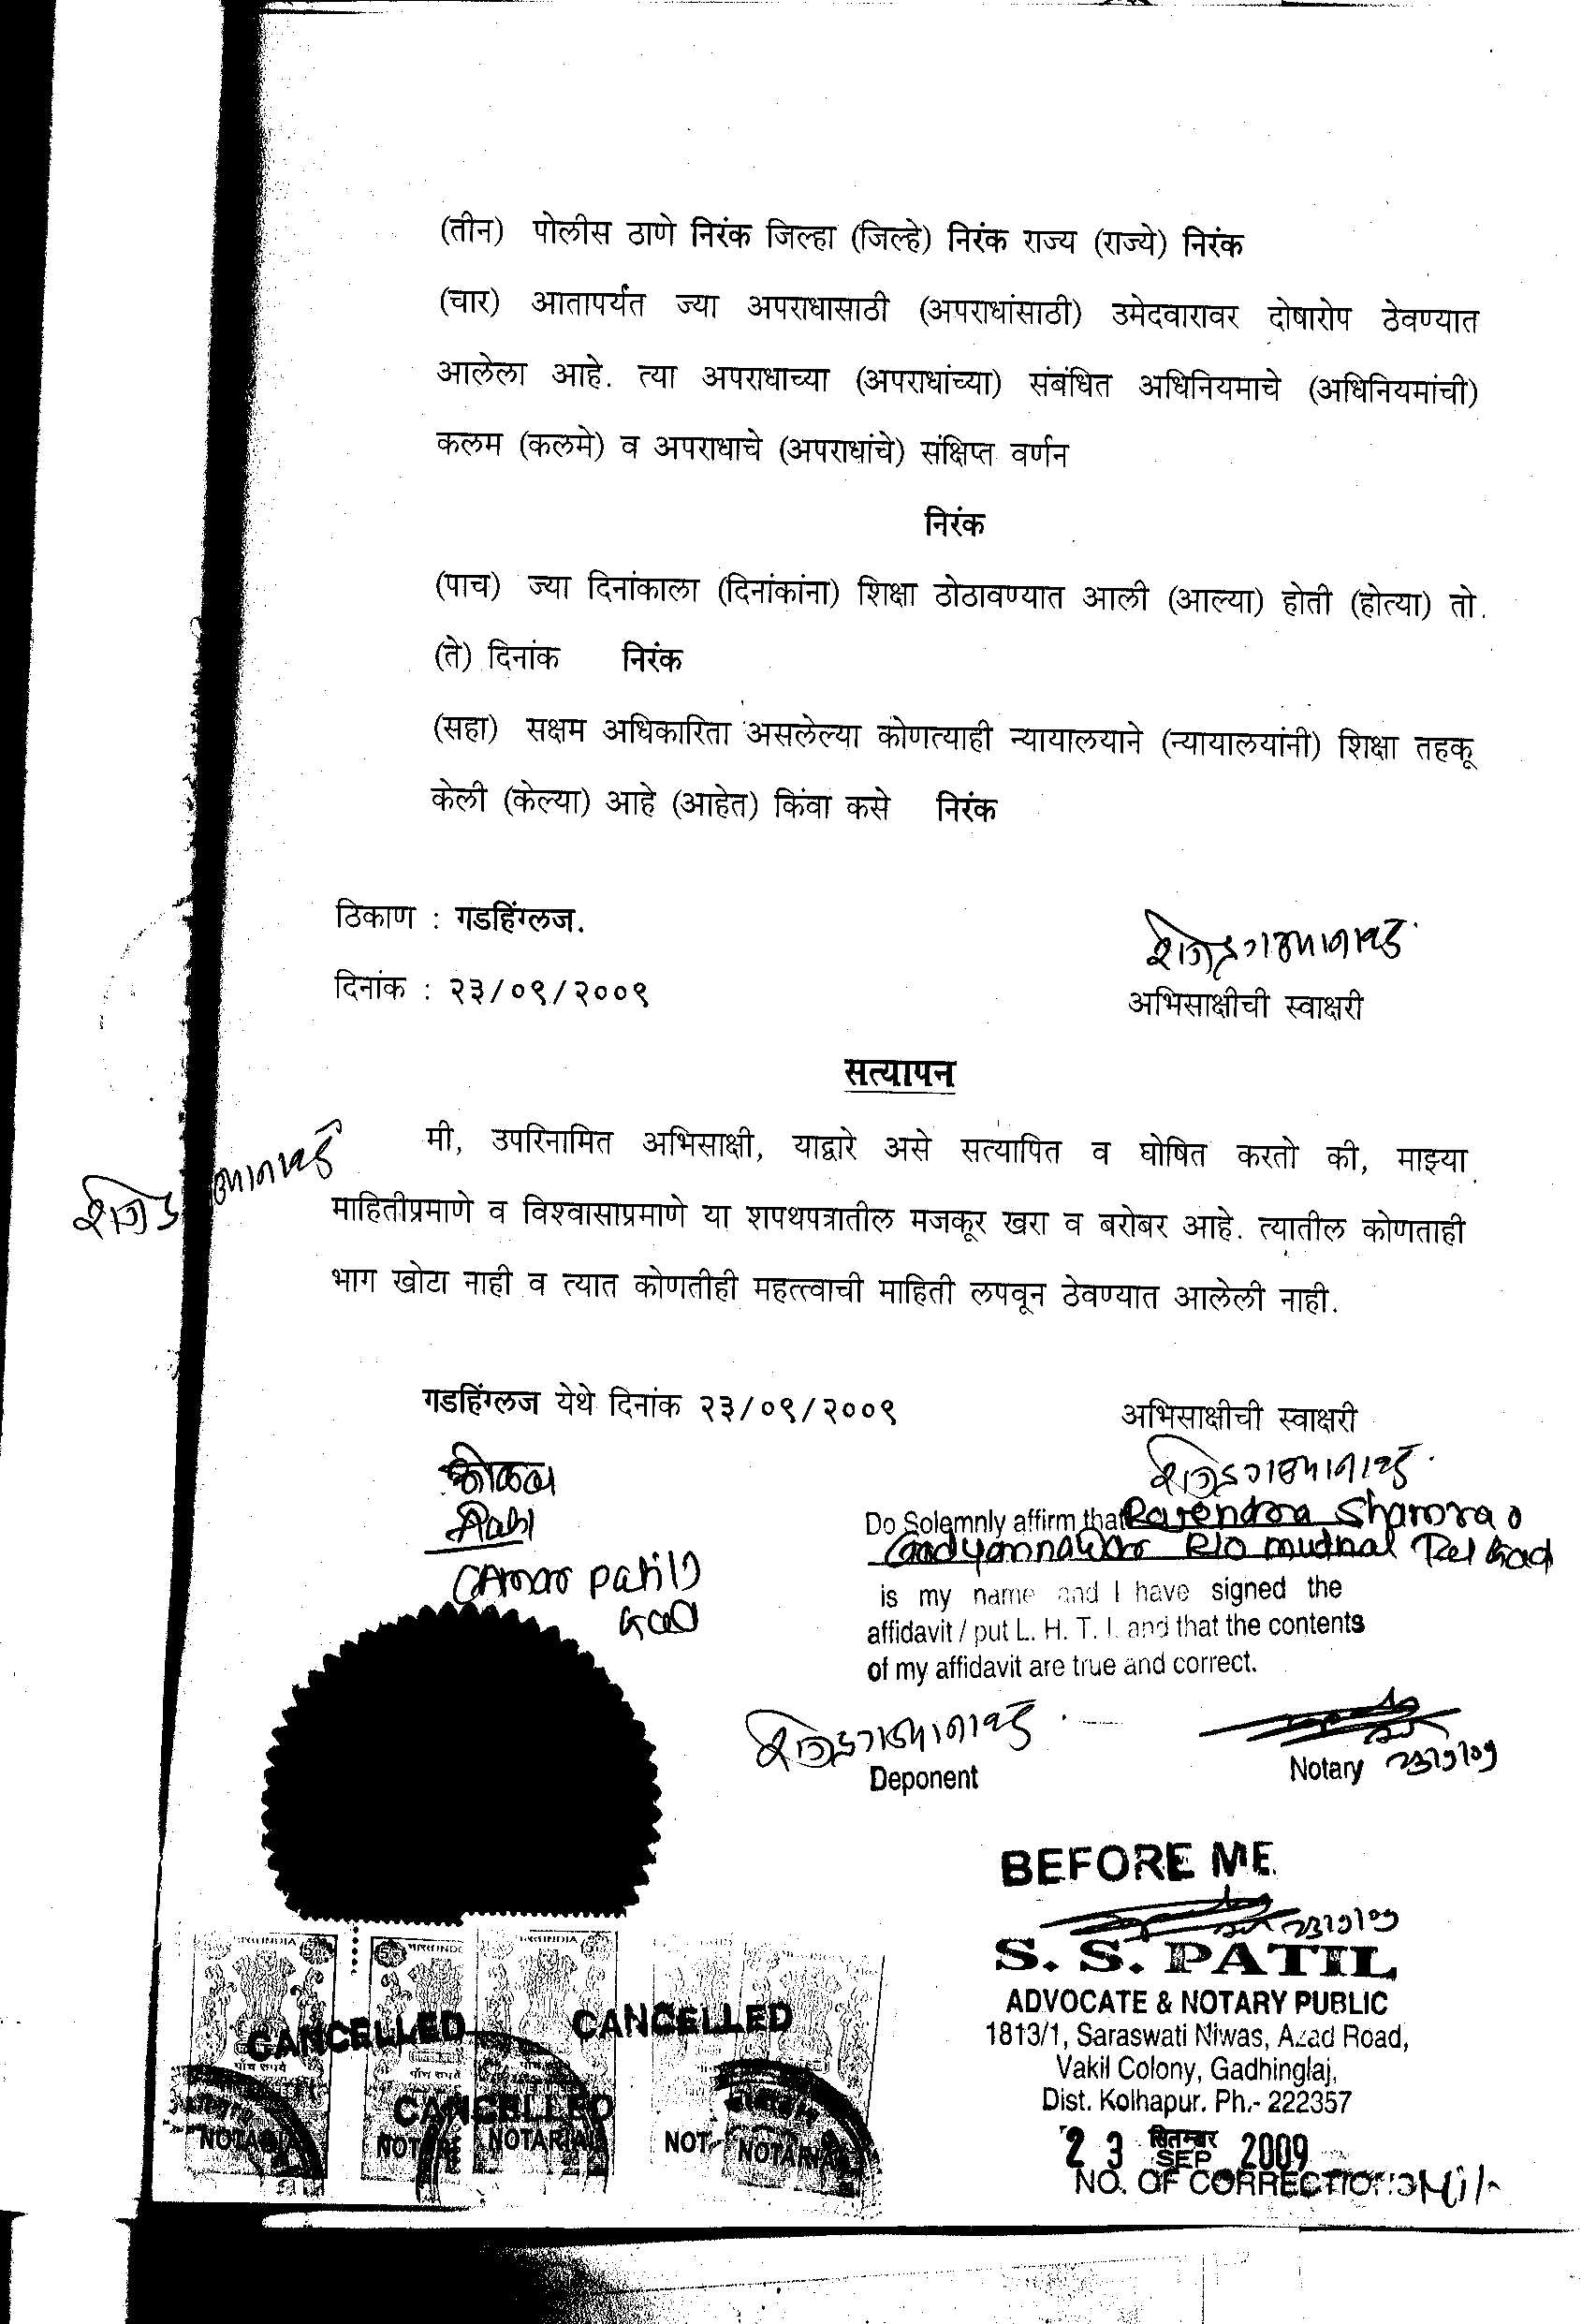 (तीन) पोलीस ठाणे निरंक जिल्हा (जिल्हे) निरंक राज्य (राज्ये) निरंक
(चार) आतापर्यंत ज्या अपराधासाठी (अपराधांसाठी) उमेदवारावर दोषारोप ठेवण्यात
आलेला आहे. त्या अपराधाच्या (अपराधांच्या) संबंधित अधिनियमाचे (अधिनियमांची)
कलम (कलमे) व अपराधाचे (अपराधांचे) संक्षिप्त वर्णन
निरंक
(पाच) ज्या दिनांकाला (दिनांकांना) शिक्षा ठोठावण्यात आली (आल्या) होती (होत्या) तो.
(ते) दिनांक निरंक
(सहा) सक्षम अधिकारिता असलेल्या कोणत्याही न्यायालयाने (न्यायालयांनी) शिक्षा तहकू
केली (केल्या) आहे (आहेत) किंवा कसे निरंक
ठिकाण : गडहिंग्लज.
दिनांक : २३/०९/२००९
अभिसाक्षीची स्वाक्षरी
सत्यापन
मी, उपरिनामित अभिसाक्षी, याद्वारे असे सत्यापित व घोषित करतो की, माझ्या
माहितीप्रमाणे व विश्वासाप्रमाणे या शपथपत्रातील मजकूर खरा व बरोबर आहे. त्यातील कोणताही
भाग खोटा नाही व त्यात कोणतीही महत्त्वाची माहिती लपवून ठेवण्यात आलेली नाही.
गडहिंग्लज येथे दिनांक २३/०९/२००९
अभिसाक्षीची स्वाक्षरी
Do Solemnly affirm that Rajendra Shamrao
Gadyannawar R/o mudnal Tal Gad
is my name and I have signed the
affidavit / put L. H. T. I. and that the contents
of my affidavit are true and correct.
Deponent
Notary
BEFORE ME
S. S. PATIL
ADVOCATE & NOTARY PUBLIC
1813/1, Saraswati Niwas, Azad Road,
Vakil Colony, Gadhinglaj,
Dist. Kolhapur. Ph.- 222357
23 सितम्बर SEP 2009
NO. OF CORRECTIONS Nil
CANCELLED
CANCELLED
CANCELLED
पाँच रुपये
पाँच रुपये
NOTARIAL
NOTARIAL
NOTARIAL